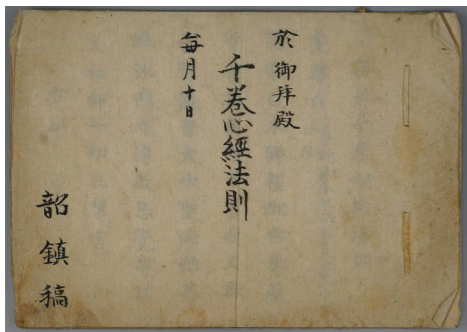 於御拜殿
千卷心經法則
每月十日
韶鎮稿